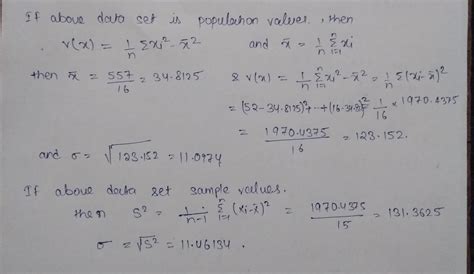 If above data set is population values, then
v(x) = 1/n Σxi² - x̄² and x̄ = 1/n Σ_{i=1}^{n} xi
then x̄ = 557/16 = 34.8125 & v(x) = 1/n Σ_{i=1}^{n} xi² - x̄² = 1/n Σ(xi - x̄)²
= (52-34.8125)²+...+(16-34.8)² = 1/16 × 1970.4375
= 1970.4375/16 = 123.152.
and σ = √123.152 = 11.0974
If above data set sample values.
then S² = 1/(n-1) Σ_{i=1}^{n} (xi - x̄)² = 1970.4375/15 = 131.3625
σ = √S² = 11.46134.